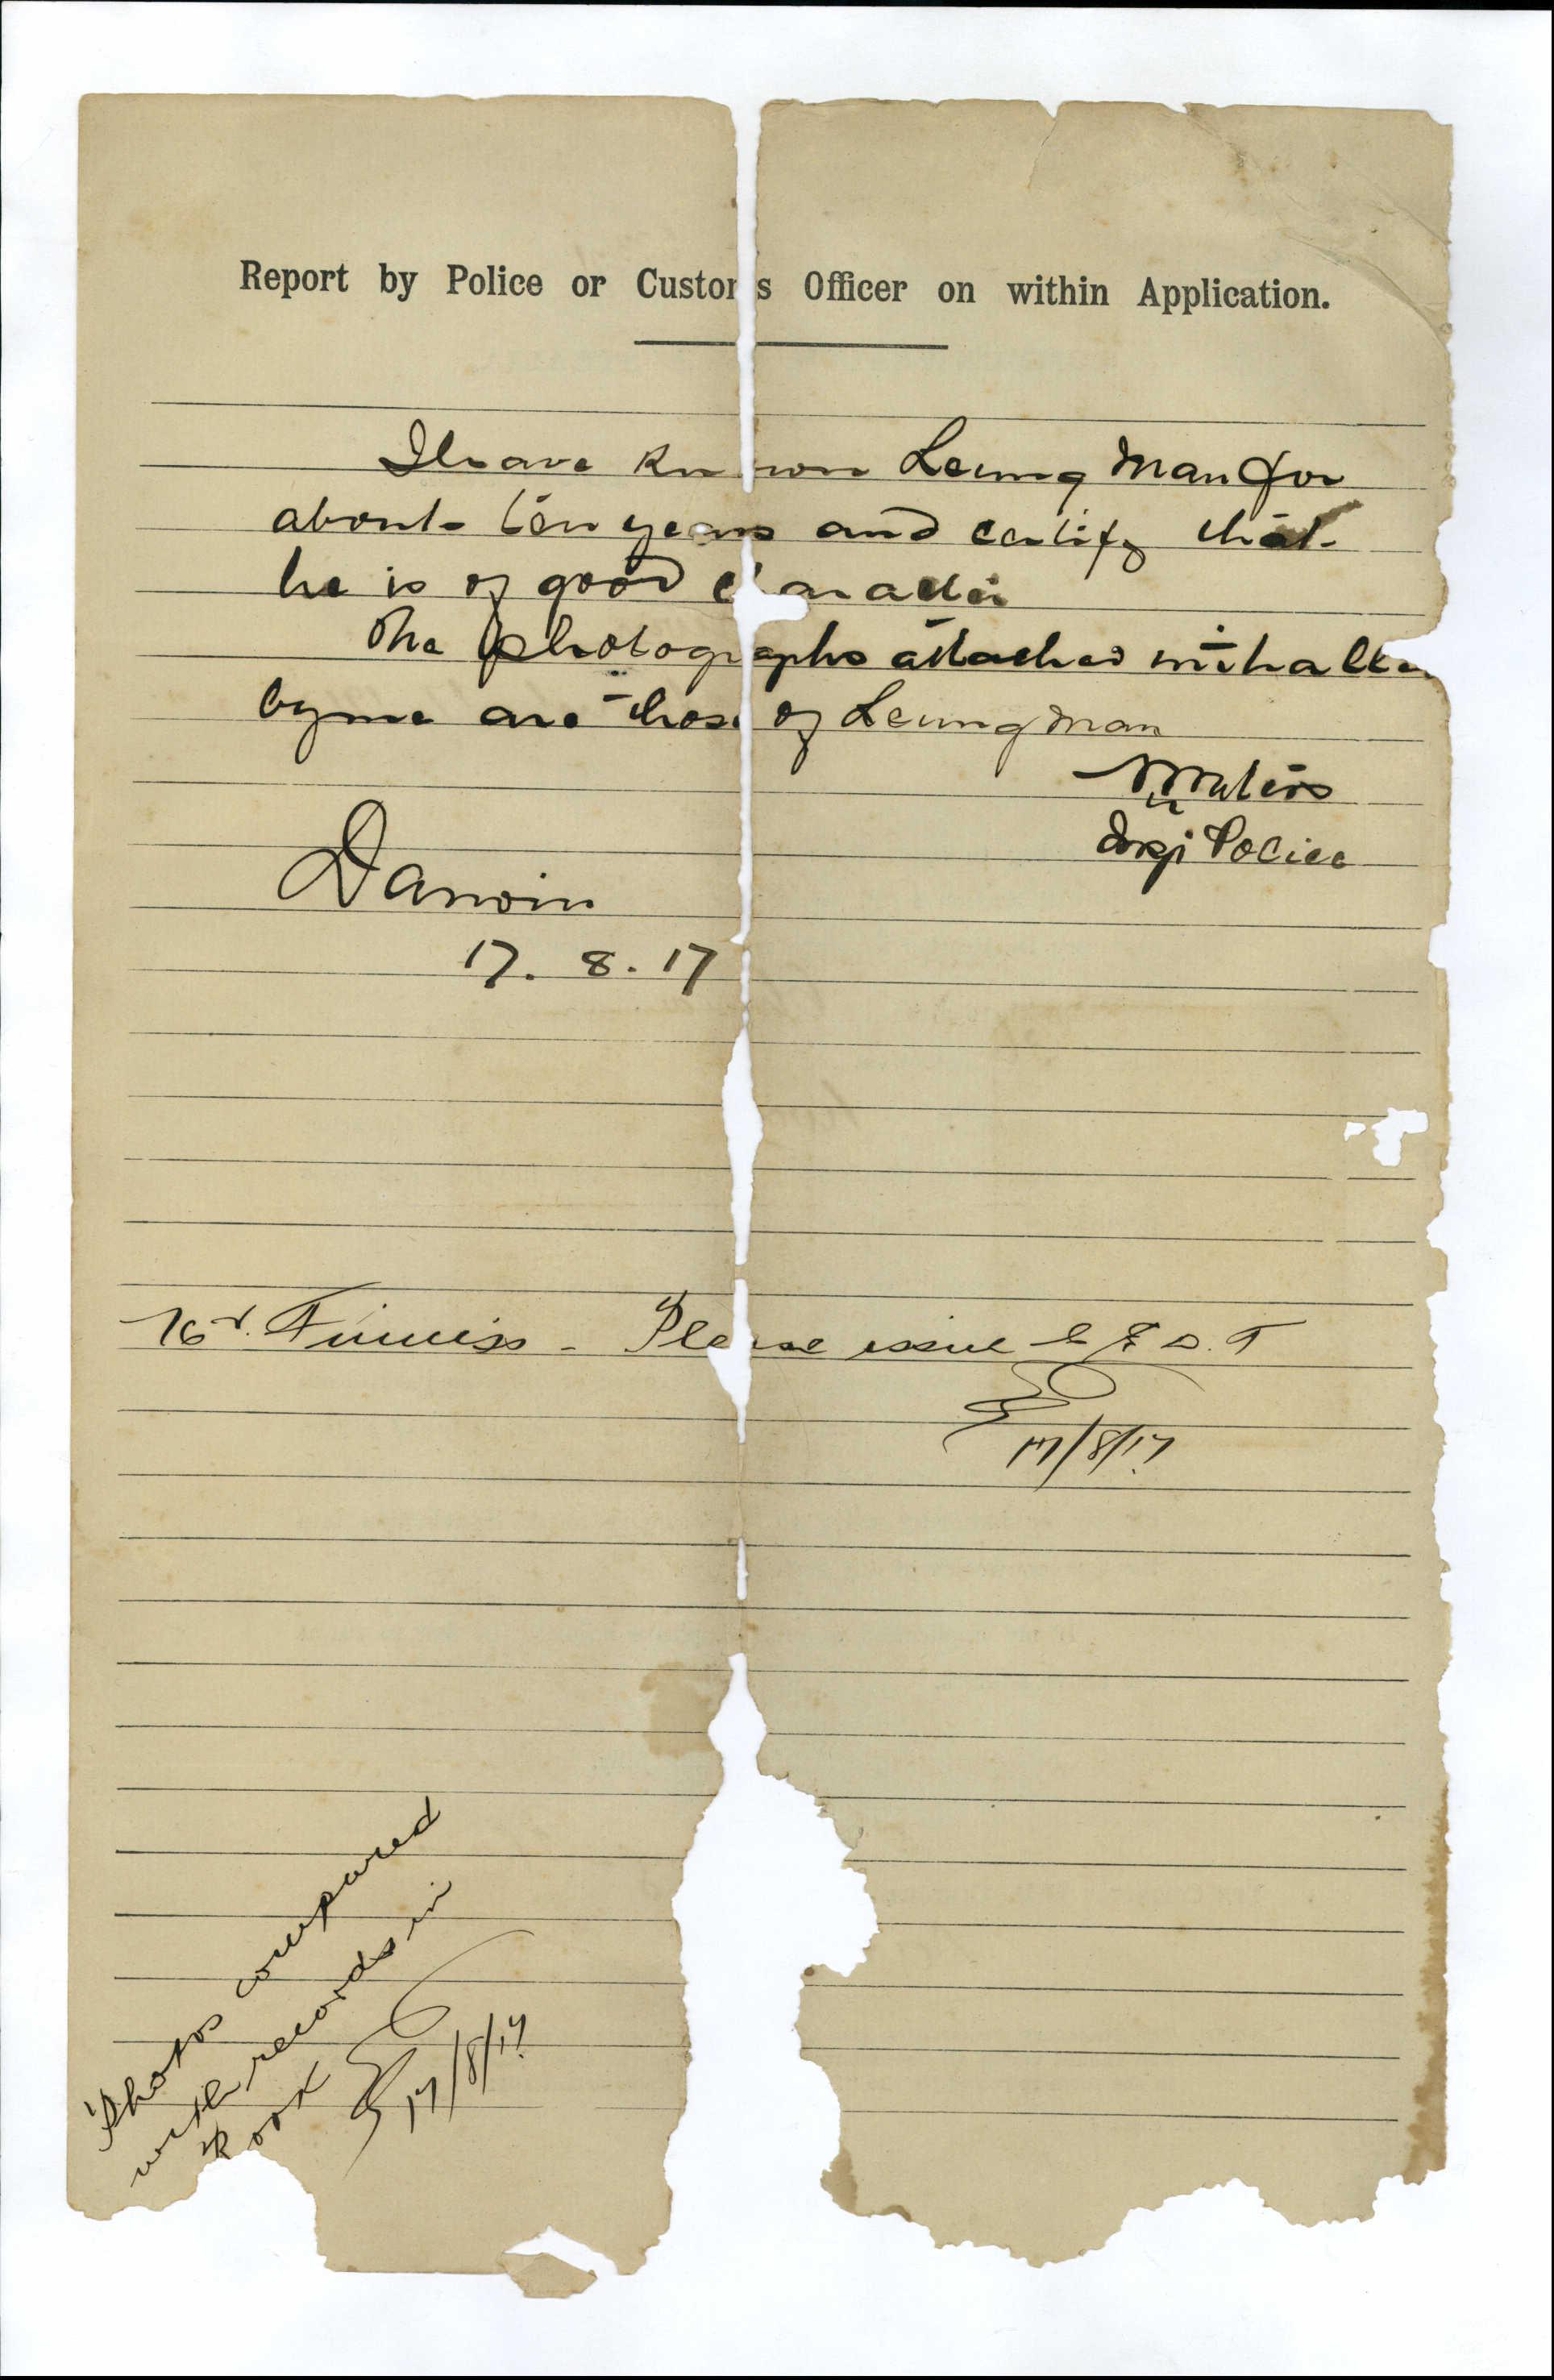 Report by Police or Customs Officer on within Application.
I have known Leung Man for
about ten years and certify that
he is of good character
The photographs attached initialled
by me are those of Leung Man
N Waters
Insp Police
Darwin
17. 8. 17
Mr. Finniss - Please issue C E D. T
17/8/17
Photos compared
with records in
Book
17/8/17